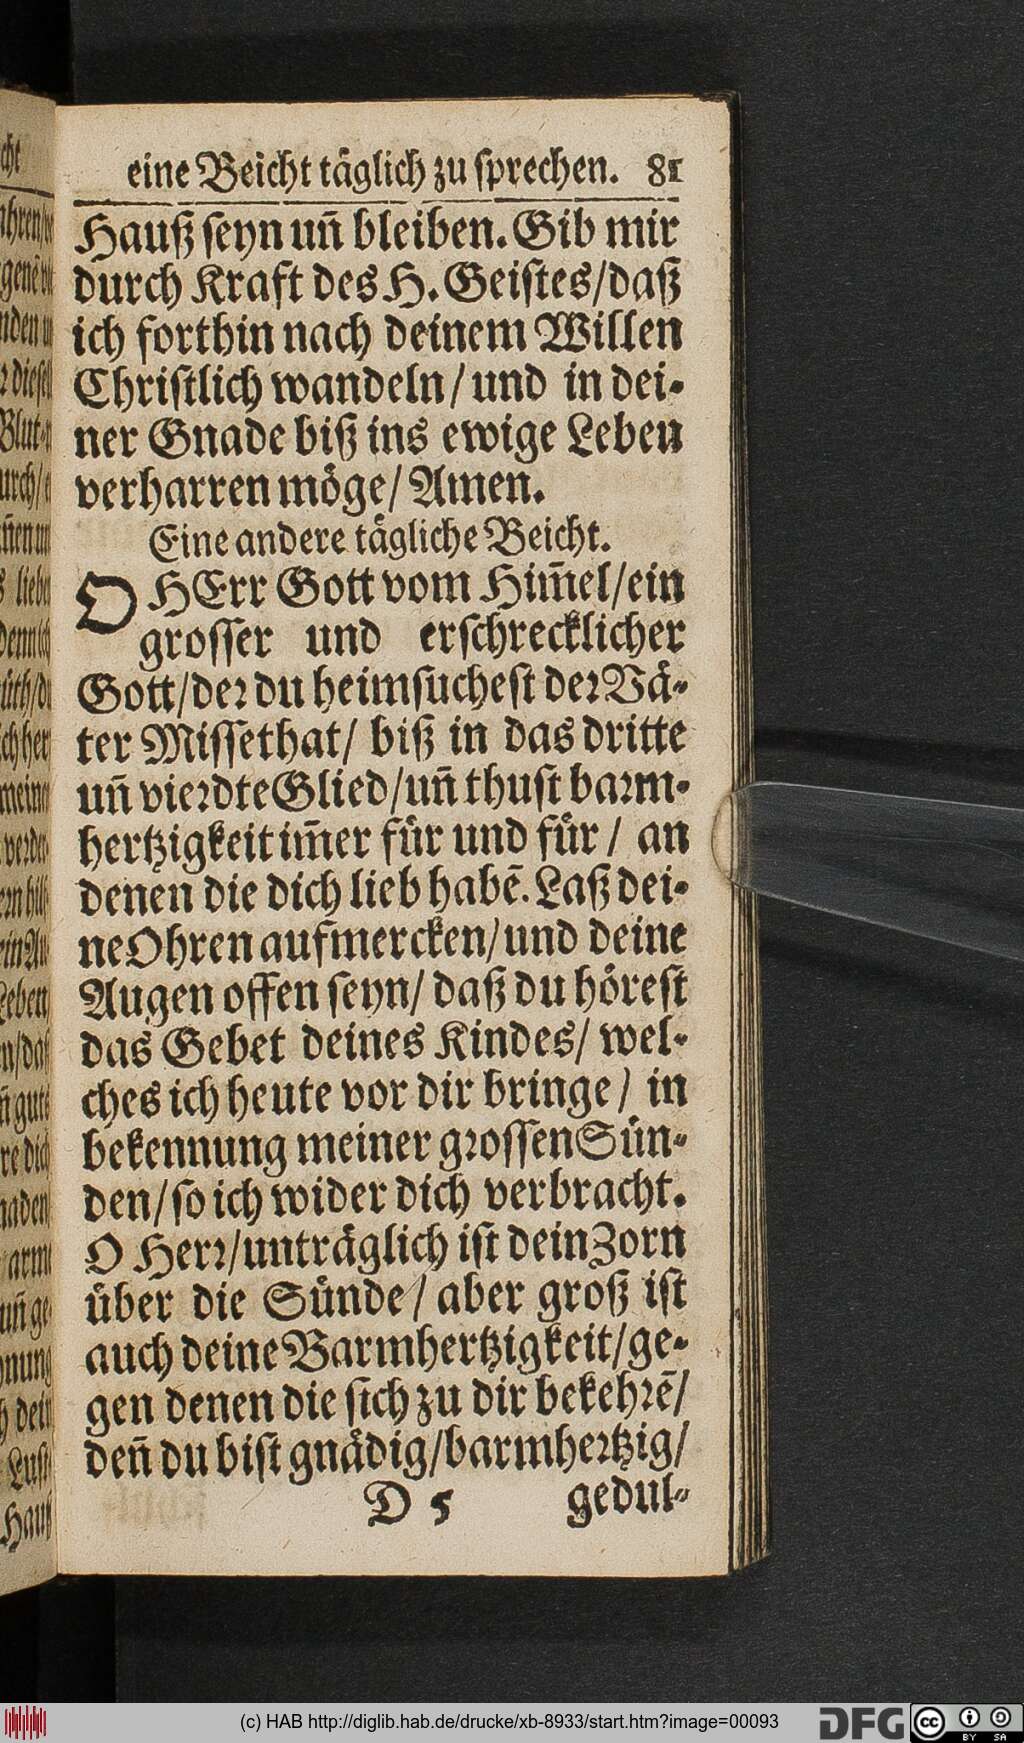 eine Beicht täglich zu sprechen. 81
Hauß seyn uñ bleiben. Gib mir
durch Kraft des H. Geistes/daß
ich forthin nach deinem Willen
Christlich wandeln/ und in dei-
ner Gnade biß ins ewige Leben
verharren möge/ Amen.
Eine andere tägliche Beicht.
O HErr Gott vom Him̃el/ein
grosser und erschrecklicher
Gott/der du heimsuchest der Vä-
ter Missethat/ biß in das dritte
uñ vierdte Glied/uñ thust barm-
hertzigkeit im̃er für und für/ an
denen die dich lieb habẽ. Laß dei-
ne Ohren aufmercken/und deine
Augen offen seyn/ daß du hörest
das Gebet deines Kindes/ wel-
ches ich heute vor dir bringe/ in
bekennung meiner grossen Sün-
den/so ich wider dich verbracht.
O Herr/unträglich ist dein Zorn
über die Sünde/ aber groß ist
auch deine Barmhertzigkeit/ge-
gen denen die sich zu dir bekehrẽ/
deñ du bist gnädig/barmhertzig/
D 5 gedul-
(c) HAB http://diglib.hab.de/drucke/xb-8933/start.htm?image=00093
DFG
cc
BY SA